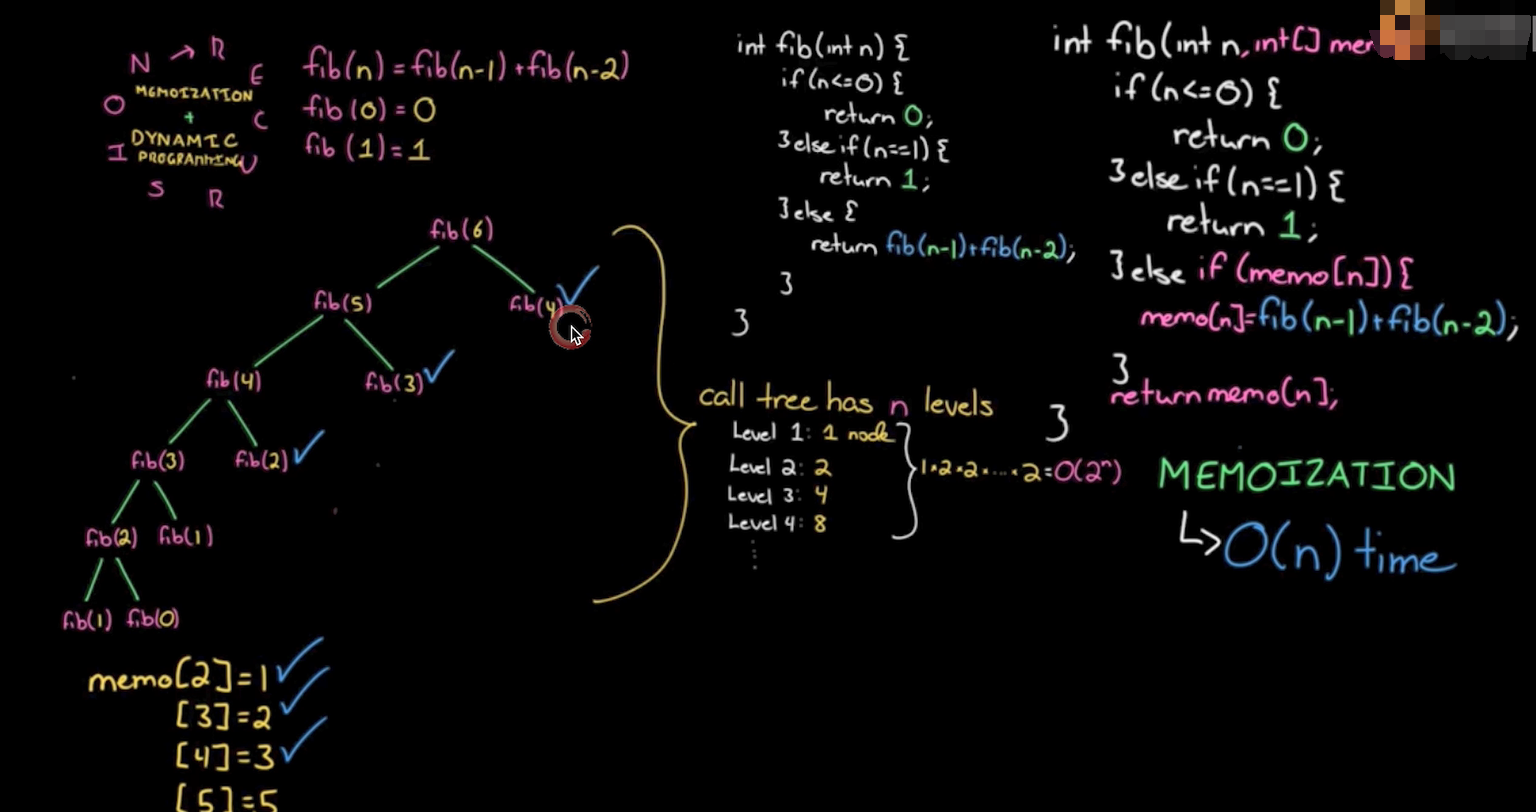 N → R E C U R S I O N
MEMOIZATION
+
DYNAMIC
PROGRAMMING
fib(n) = fib(n-1) + fib(n-2)
fib(0) = 0
fib(1) = 1
fib(6)
fib(5) fib(4)
fib(4) fib(3)
fib(3) fib(2)
fib(2) fib(1)
fib(1) fib(0)
memo[2]=1
[3]=2
[4]=3
[5]=5
int fib(int n) {
if(n<=0) {
return 0;
}else if(n==1) {
return 1;
}else {
return fib(n-1)+fib(n-2);
}
}
call tree has n levels
Level 1: 1 node
Level 2: 2
Level 3: 4
Level 4: 8
1*2*2*...*2=O(2ⁿ)
int fib(int n, int[]
if(n<=0) {
return 0;
}else if(n==1) {
return 1;
}else if(memo[n]){
memo[n]=fib(n-1)+fib(n-2);
}
return memo[n];
}
MEMOIZATION
↳ O(n) time